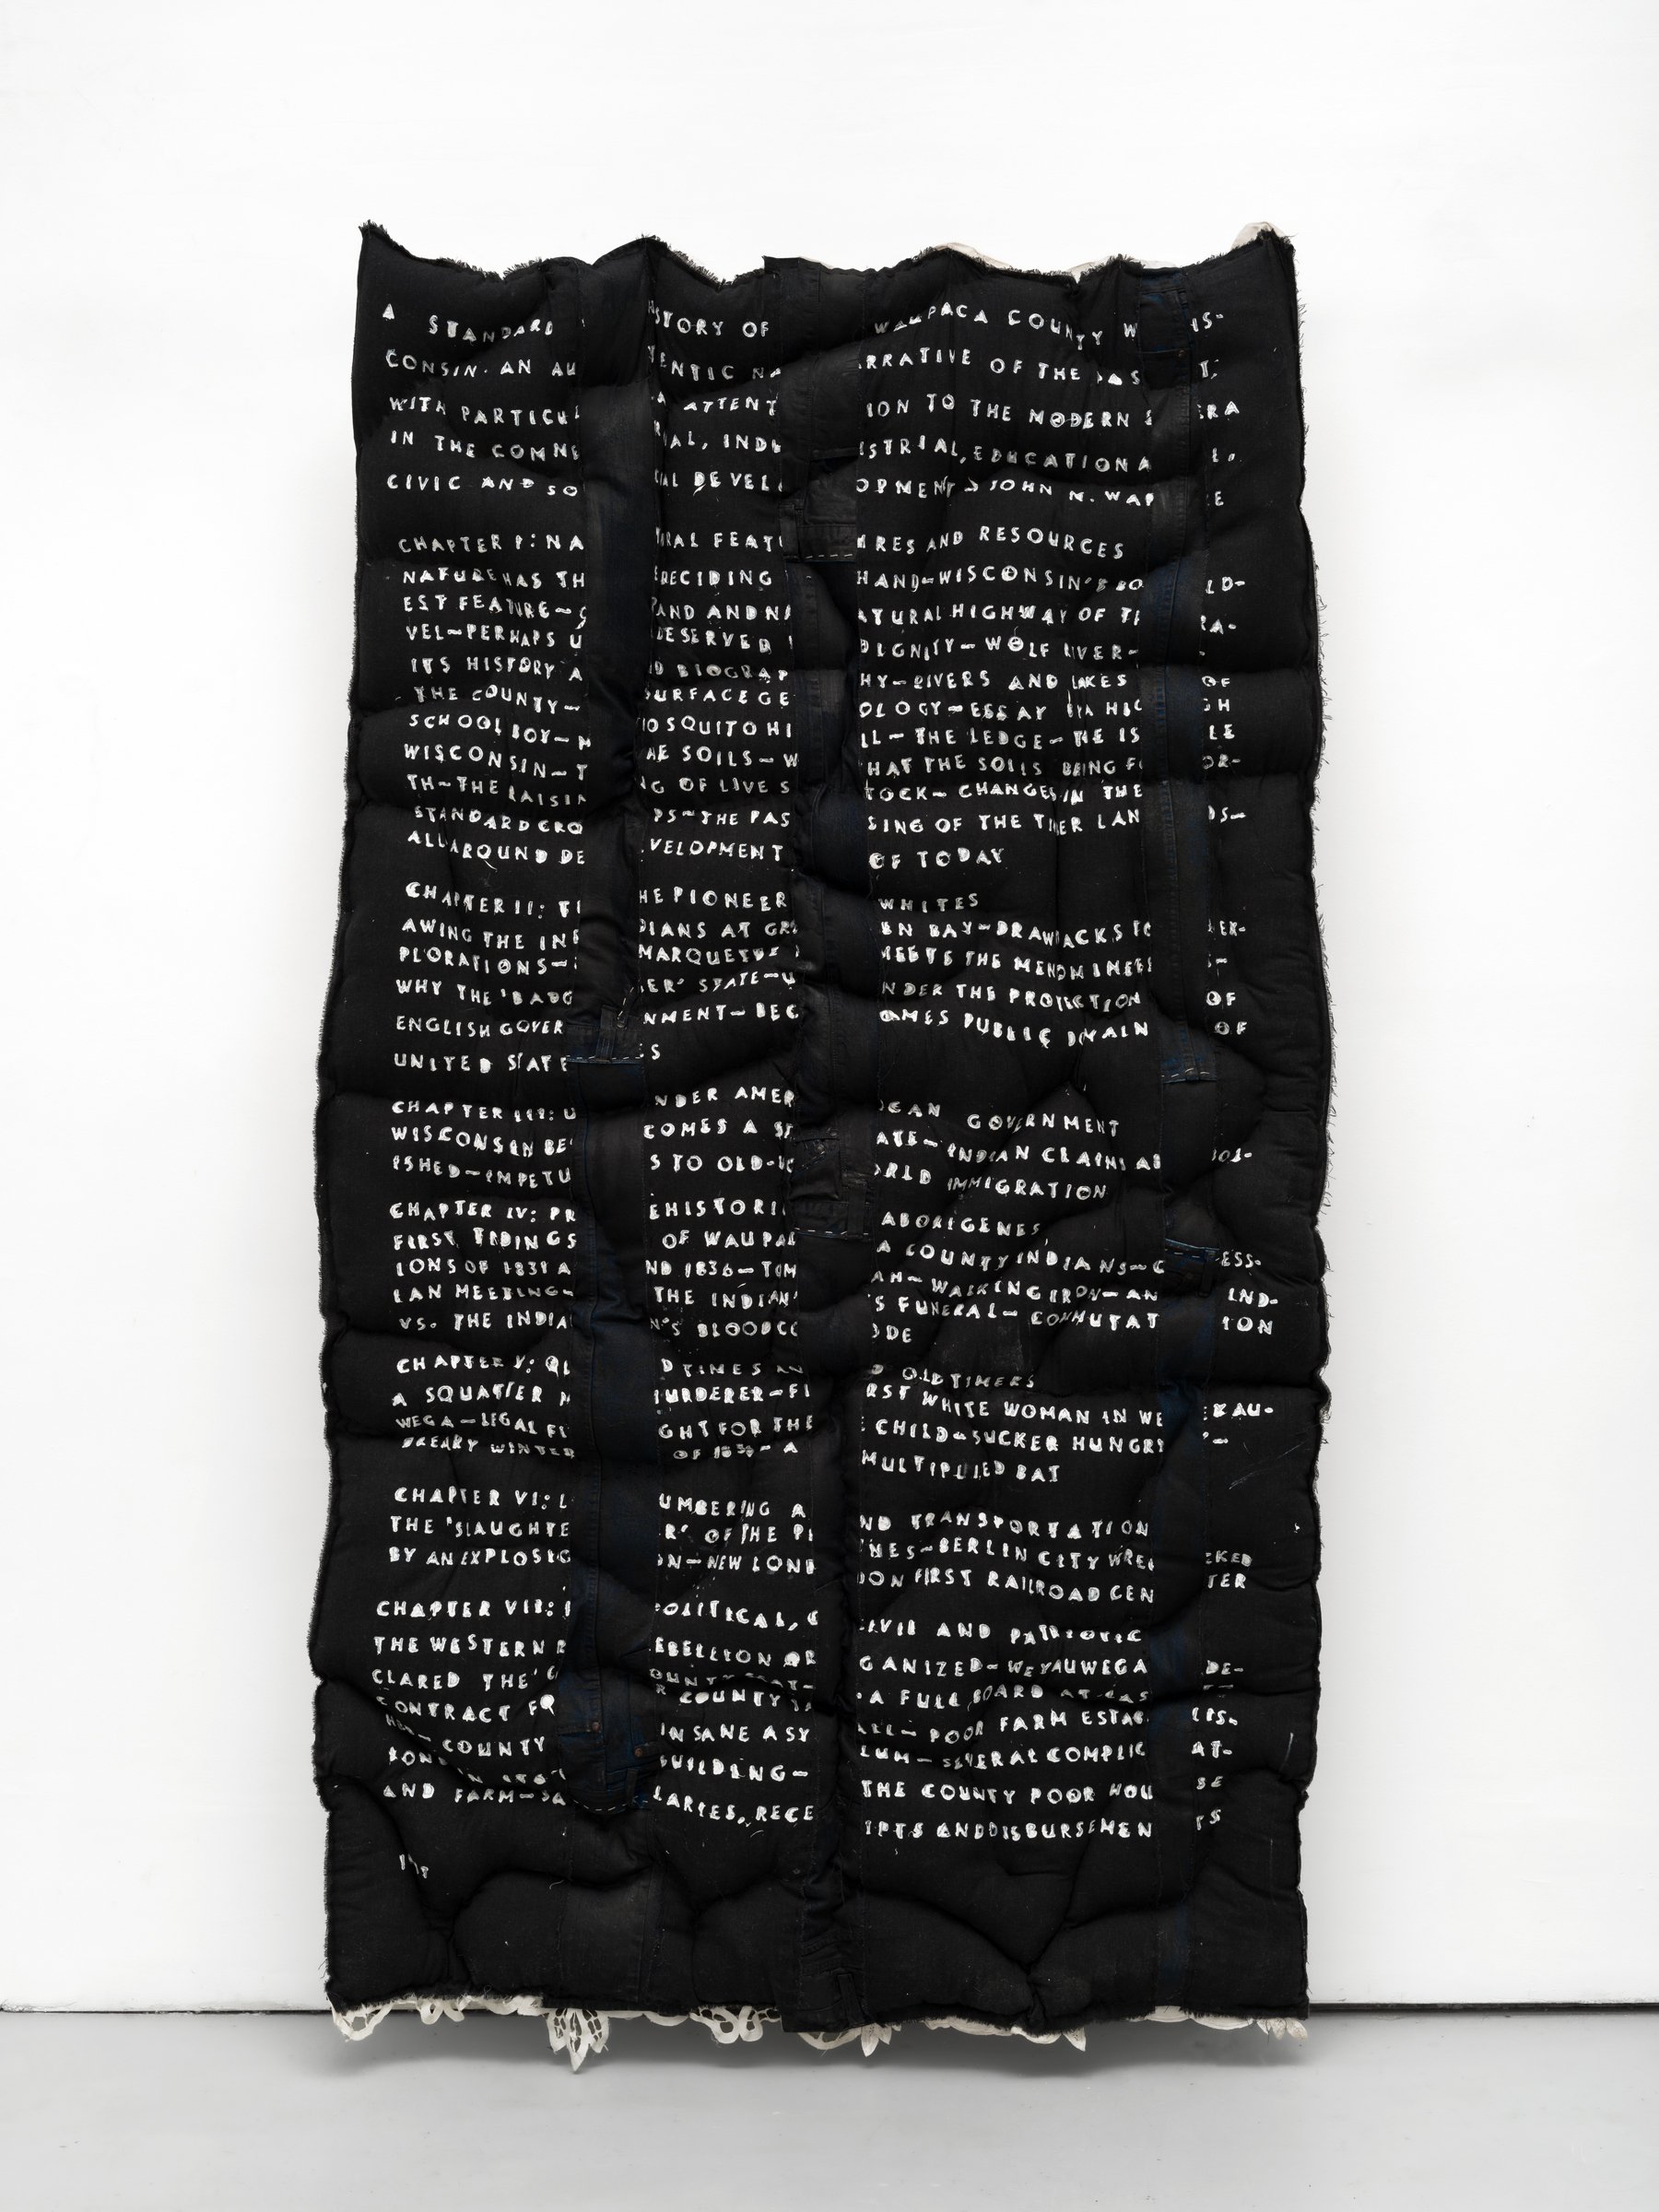 A STANDARD HISTORY OF WAUPACA COUNTY W IS-
CONSIN. AN AU ENTIC NA RRATIVE OF THE PAS T,
WITH PARTICUL A ATTENT ION TO THE MODERN ERA
IN THE COMME RIAL, INDU STRIAL, EDUCATIONA L,
CIVIC AND SO CIAL DEVEL OPMENT JOHN M. WAR E
CHAPTER I: NA URAL FEATU RES AND RESOURCES
NATURE HAS TH E DECIDING HAND—WISCONSIN'S BO LD-
EST FEATURE— AND AND NA ATURAL HIGHWAY OF T RA-
VEL—PERHAPS U DESERVED DIGNITY—WOLF RIVER—
ITS HISTORY A ND BIOGRAP HY—RIVERS AND LAKES OF
THE COUNTY— SURFACE GE OLOGY—ESSAY BY A HIG H
SCHOOL BOY—M OSQUITO HI LL—THE LEDGE—THE IS LE
WISCONSIN—T HE SOILS—W HAT THE SOILS BEING F OR-
TH—THE RAISIN NG OF LIVE S TOCK—CHANGES IN THE
STANDARD CRO PS—THE PAS SING OF THE TIMBER LAN DS—
ALL AROUND DE VELOPMENT OF TODAY
CHAPTER II: T HE PIONEER WHITES
AWING THE IND DIANS AT GR EEN BAY—DRAWBACKS TO EX-
PLORATIONS— MARQUETTE MEETS THE MENOMINEES—
WHY THE 'BADG ER' STATE—U NDER THE PROTECTION OF
ENGLISH GOVER NMENT—BEC OMES PUBLIC DOMAIN OF
UNITED STATE S
CHAPTER III: U NDER AMER ICAN GOVERNMENT
WISCONSIN BE COMES A ST ATE—INDIAN CLAIMS AB OL-
ISHED—IMPETU S TO OLD-W ORLD IMMIGRATION
CHAPTER IV: PR EHISTORIC ABORIGENES
FIRST TIDINGS OF WAUPAC A COUNTY INDIANS—C ESS-
IONS OF 1831 A ND 1836—TOM AH—WALKING IRON—AN IND-
IAN MEETING— THE INDIAN' S FUNERAL—COMMUTAT ION
VS. THE INDIA N'S BLOOD CO ODE
CHAPTER V: OL D TIMES AN D OLD TIMERS
A SQUATTER M URDERER—FI RST WHITE WOMAN IN WE YAU-
WEGA—LEGAL FI GHT FOR THE CHILD—SUCKER HUNGRY—
DREARY WINTER OF A MULTIPLIED BAT
CHAPTER VI: L UMBERING A ND TRANSPORTATION
THE 'SLAUGHTE R' OF THE PI NES—BERLIN CITY WRE CKED
BY AN EXPLOSIO ON—NEW LOND DON FIRST RAILROAD CEN TER
CHAPTER VII: POLITICAL, C IVIL AND PATRIOTIC
THE WESTERN R EBELLION OR GANIZED—WEYAUWEGA DE-
CLARED THE COUNTY A FULL BOARD AT LAS T—
CONTRACT FO R COUNTY JA AIL—POOR FARM ESTAB LIS-
HED—COUNTY INSANE ASY LUM—SEVERAL COMPLIC AT-
IONS BUILDING— THE COUNTY POOR HOU SE
AND FARM—SA LARIES, RECE IPTS AND DISBURSEMEN TS